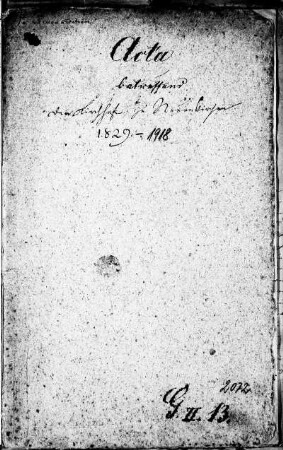 Acta
betreffend
den Kirchhof zu Neuenkirchen
1829 – 1918
2072
G. II. 13.